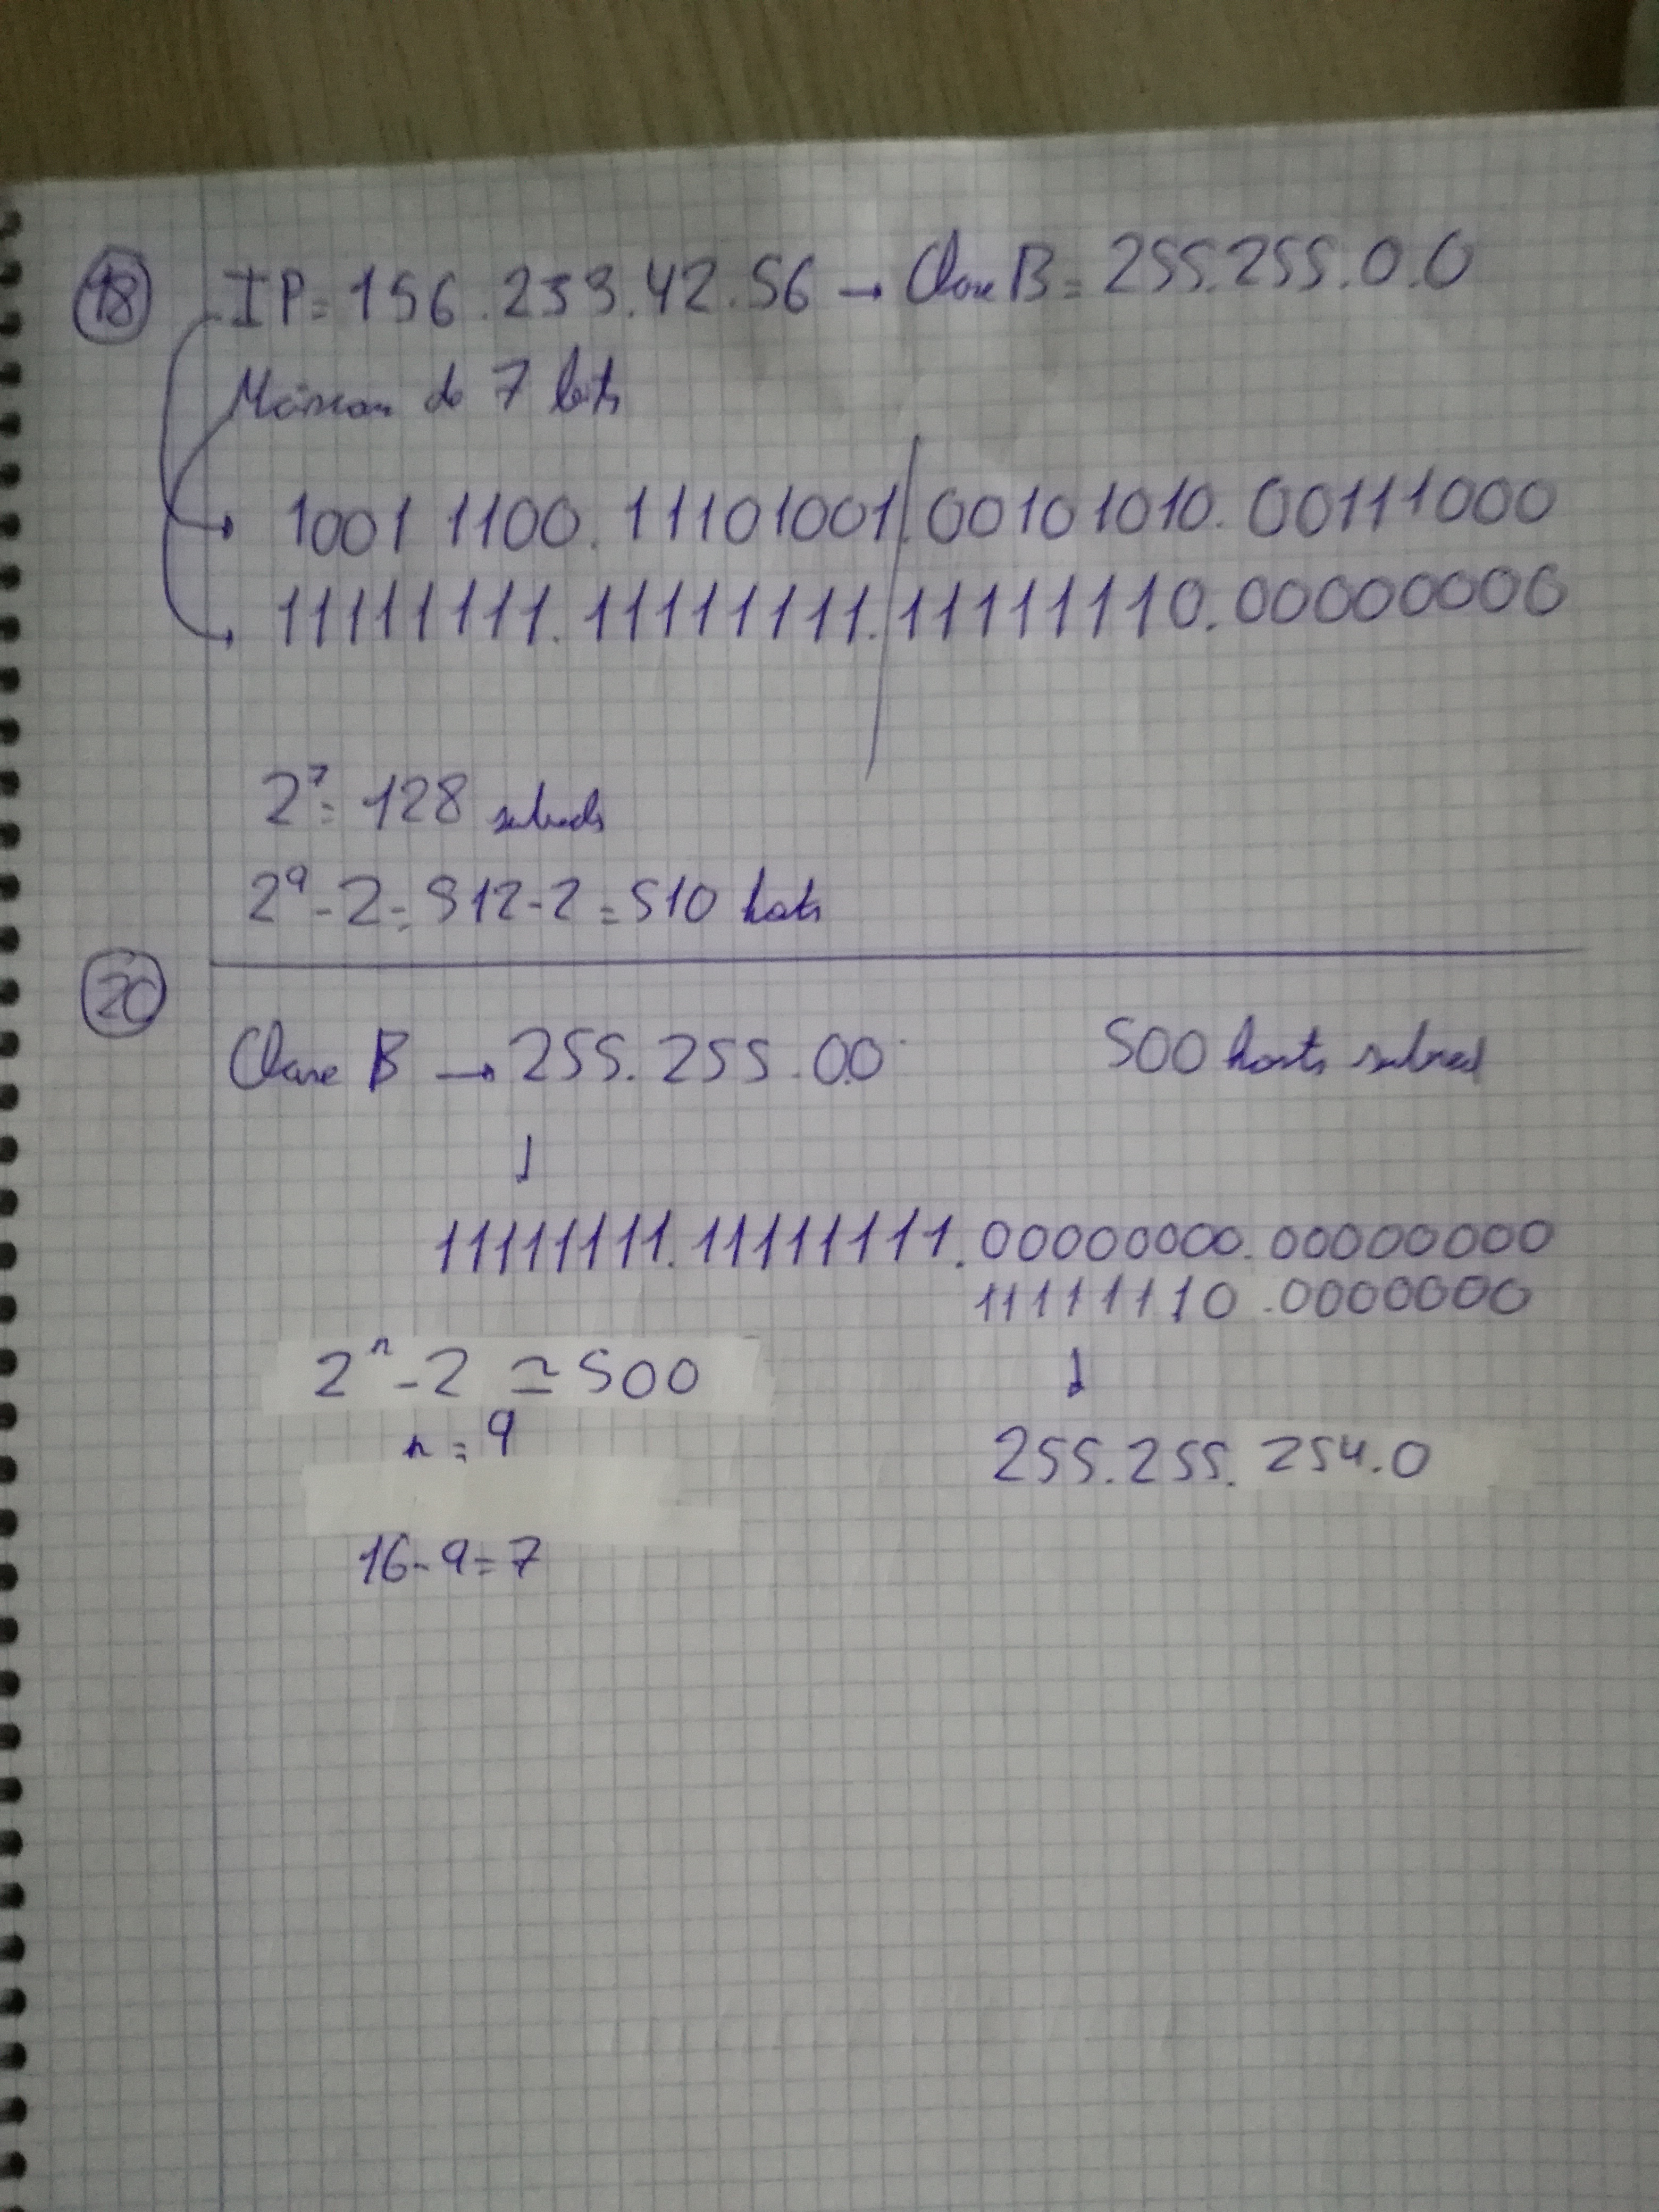 18 IP= 156.233.42.56 → Clase B = 255.255.0.0
Máscara de 7 bits
1001 1100.11101001.00101010.00111000
11111111.11111111.11111110.00000000
2⁷= 128 subreds
2⁹-2=512-2=510 hosts
20
Clase B → 255.255.0.0 500 hosts subred
↓
11111111.11111111.00000000.00000000
11111110.0000000
2ⁿ-2 ≃ 500
↓
n=9
255.255.254.0
16-9=7